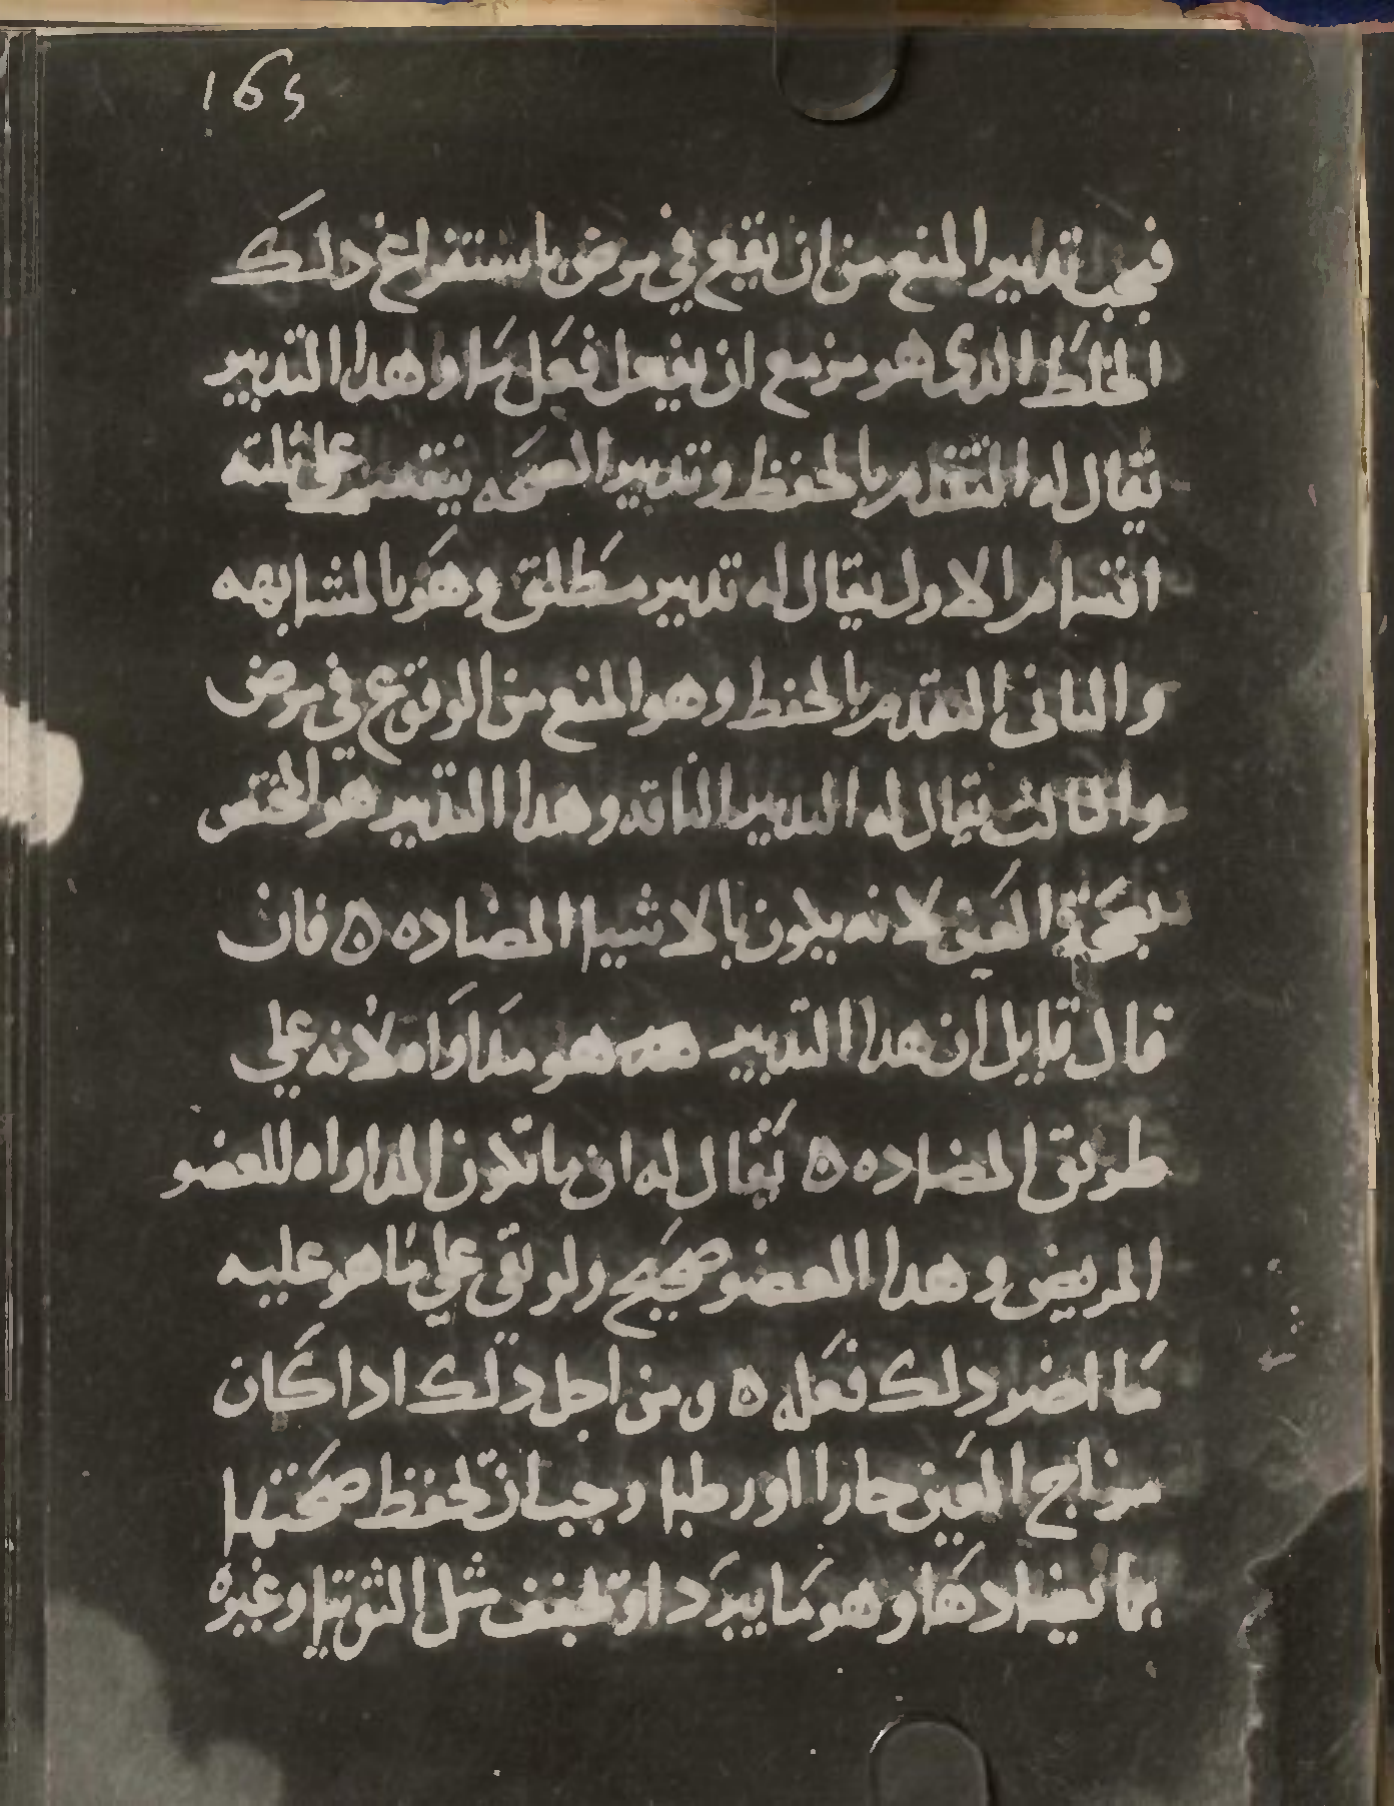 165
فيجب تدبير المنع من ان يقع في مرض باستفراغ دلك
الخلط الدى هو مزمع ان يفعل فعل ما وهدا التدبير
يقال له التقدم بالحفظ وتدبير الصحه ينقسم على ثلثه
اقسام الاول يقال له تدبير مطلق وهو بالمشابهه
والثانى التقدم بالحفظ وهو المنع من الوقوع في مرض
والثالث يقال له التدبير الناقه وهدا التدبير هو المختص
بصحة العين لانه يكون بالاشيا المضاده ٥ فان
قال قايل ان هدا التدبير هو مداواه لانه على
طريق المضاده ٥ يقال له ان ما تكون المداواه للعضو
المريض وهدا العضو صحيح ولو بقى على ما هو عليه
ما اضر دلك فعله ٥ ومن اجل دلك ادا كان
مزاج العين حارا او رطبا وجب ان تحفظ صحتها
بما يضادها وهو ما يبرد او يجفف مثل التوتيا وغيره